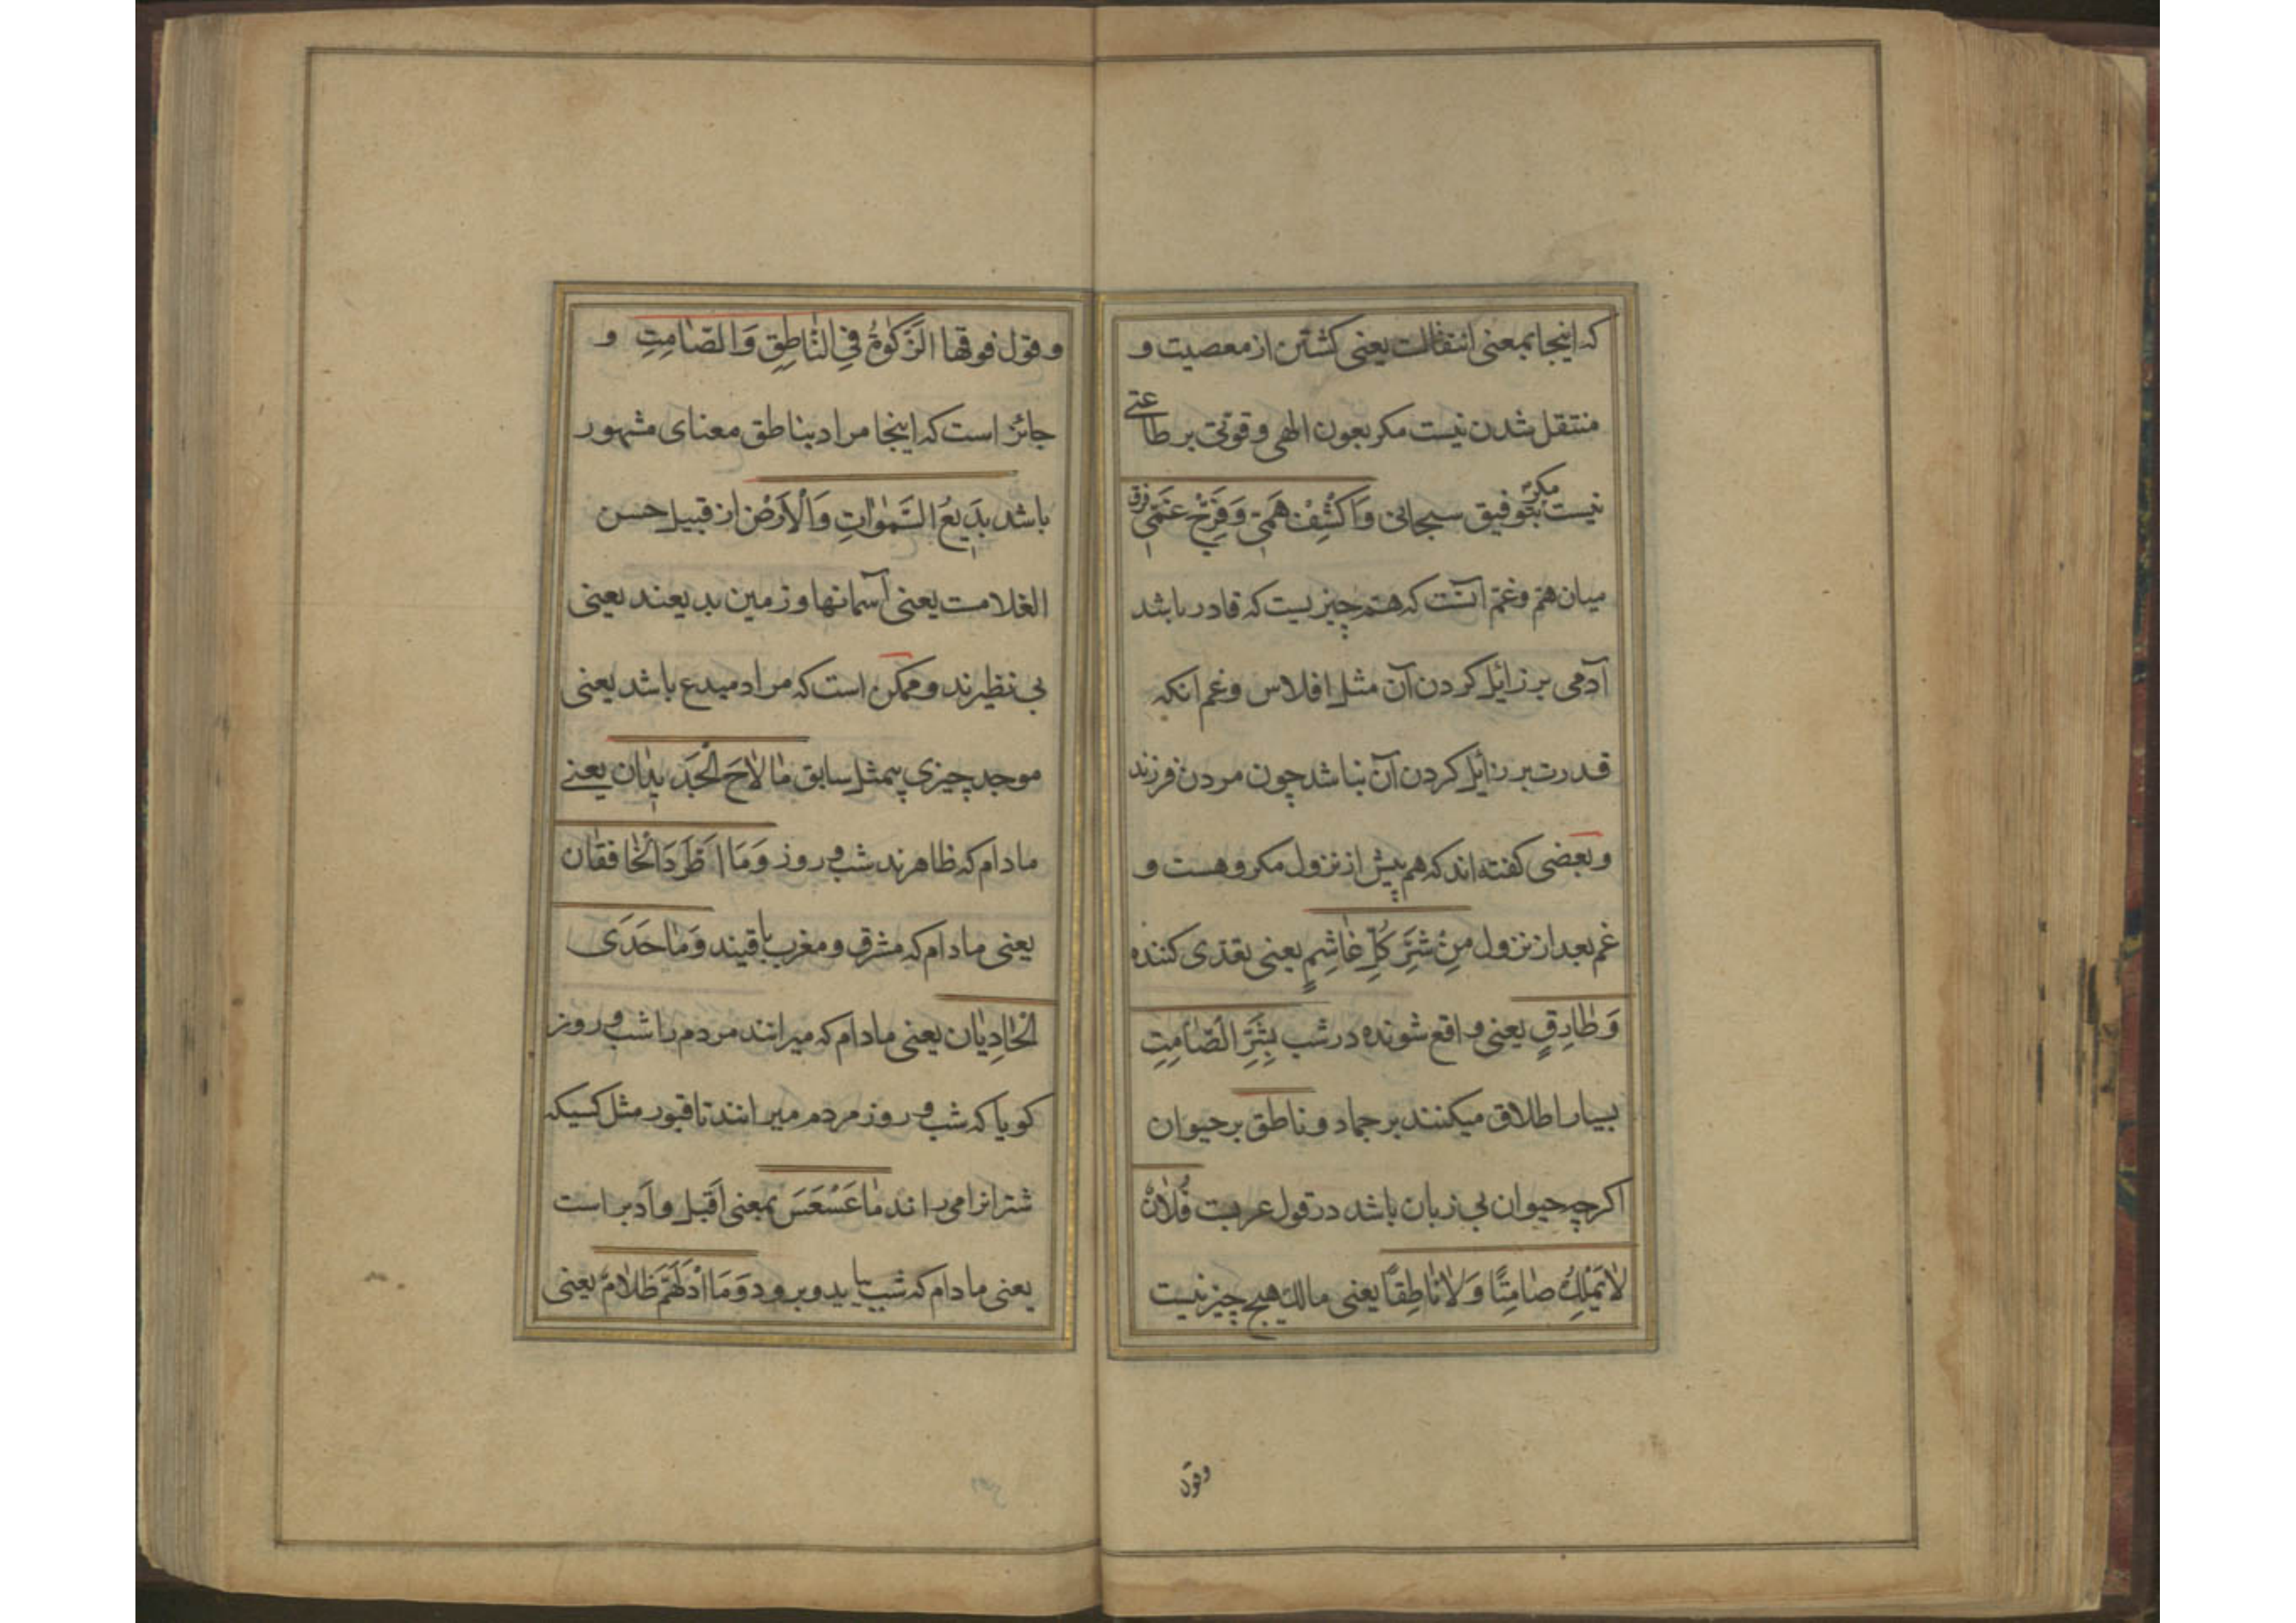 که اینجا بمعنی انتقالت یعنی کشتن از معصیت و
منتقل شدن نیست مکر بعون الهی و قوتی بر طاعتی
نیست مکر بتوفیق سبحانی وَاکْشِفْ هَمّی وَفَرِّجْ غَمّی فرق
میان هم و غم آنست که هم چیزیست که قادر باشد
آدمی بر زائل کردن آن مثل افلاس و غم انکه
قدرت بر زائل کردن آن نباشد چون مردن فرزند
و بعضی کفته اند که هم پیش از نزول مکروهست و
غم بعد از نزول مِنْ شَرِّ کُلِّ غاشِمٍ یعنی تعدی کننده
وَطارِقٍ یعنی واقع شونده در شب بِشَرِّ الصّامِتِ
بسیار اطلاق میکنند بر جماد و ناطق بر حیوان
اکرچه حیوان بی زبان باشد در قول عربت فُلانٌ
لایَمْلِكُ صامِتًا وَلاناطِقًا یعنی مالك هیچ چیز نیست
وقول
وقول فوقها الزَّکٰوةُ فِی النّاطِقِ وَالصّامِتِ و
جائز است که اینجا مراد بناطق معنای مشهور
باشد بَدیعُ السَّمٰوٰاتِ وَالْاَرْضِ از قبیل حسن
الغلامت یعنی آسمانها و زمین بدیعند یعنی
بی نظیرند و ممکن است که مراد مبدع باشد یعنی
موجد چیزی بیمثل سابق مالاحَ الْجَدیدان یعنے
مادام که ظاهرند شب و روز وَمَا اطَّرَدَ الْخافقان
یعنی مادام که مشرق و مغرب باقیند وَماحَدَی
الْحادِیان یعنی مادام که میرانند مردم را شب و روز
کویا که شب و روز مردم میرانند تا قبور مثل کسیکه
شترانرا می راند ماعَسْعَسَ بمعنی اَقبل و اَدبر است
یعنی مادام که شب بیاید و برود وَمَا ادْلَهَمَّ ظَلامٌ یعنی